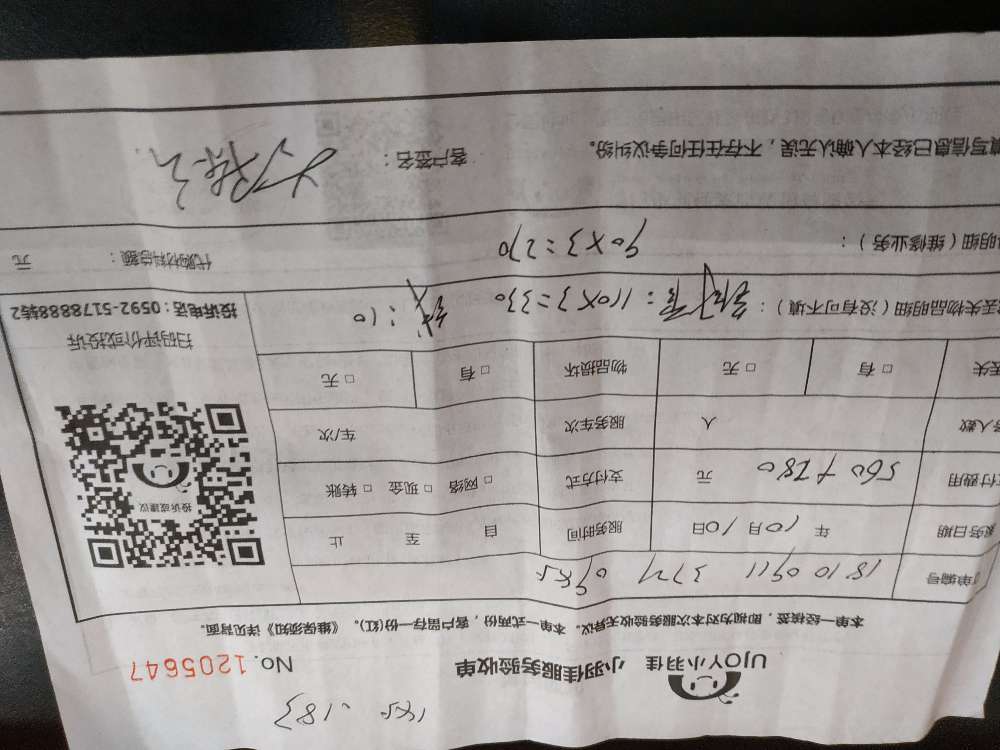 UJOY小羽佳 小羽佳服务验收单 No. 1205647
本单一经核签，即视为对本次服务验收无异议。本单一式两份，客户留存一份(红)。《维保须知》详见背面。
单编号 18 10 0911
务日期 年 10月 10日 服务时间 自 至 止
付费用 560+280 元 支付方式 □ 网络 □ 现金 □ 转账
务人数 人 服务车次 车/次
丢失 □ 有 □ 无 物品损坏 □ 有 □ 无
投诉或建议
扫码评价或投诉
投诉电话：0592-5178888转2
丢失物品明细（没有可不填）： 110X3=330 ：10
明细（维修业务）： 90X3=270 代购材料总额： 元
填写信息已经本人确认无误，不存在任何争议纠纷。 客户签名：